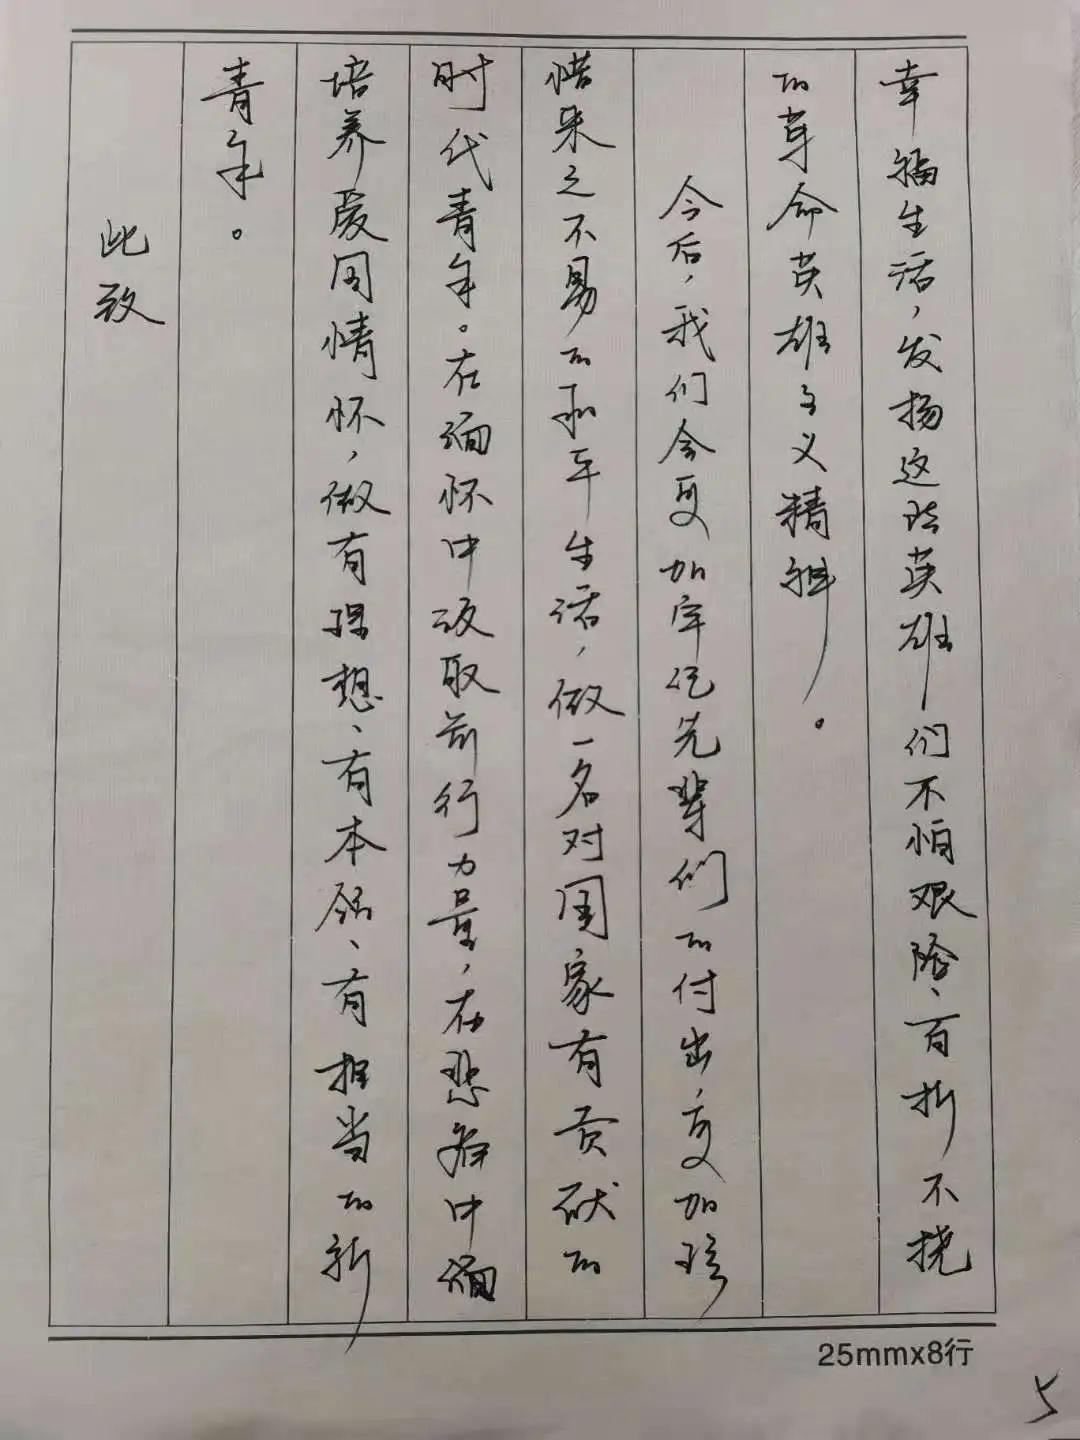 幸福生活，发扬这些英雄们不怕艰险、百折不挠
的革命英雄主义精神。
今后，我们会更加牢记先辈们的付出，更加珍
惜来之不易的和平生活，做一名对国家有贡献的
时代青年。在缅怀中汲取前行力量，在悲痛中缅
培养爱国情怀，做有理想、有本领、有担当的新
青年。
此致
25mmx8行
5